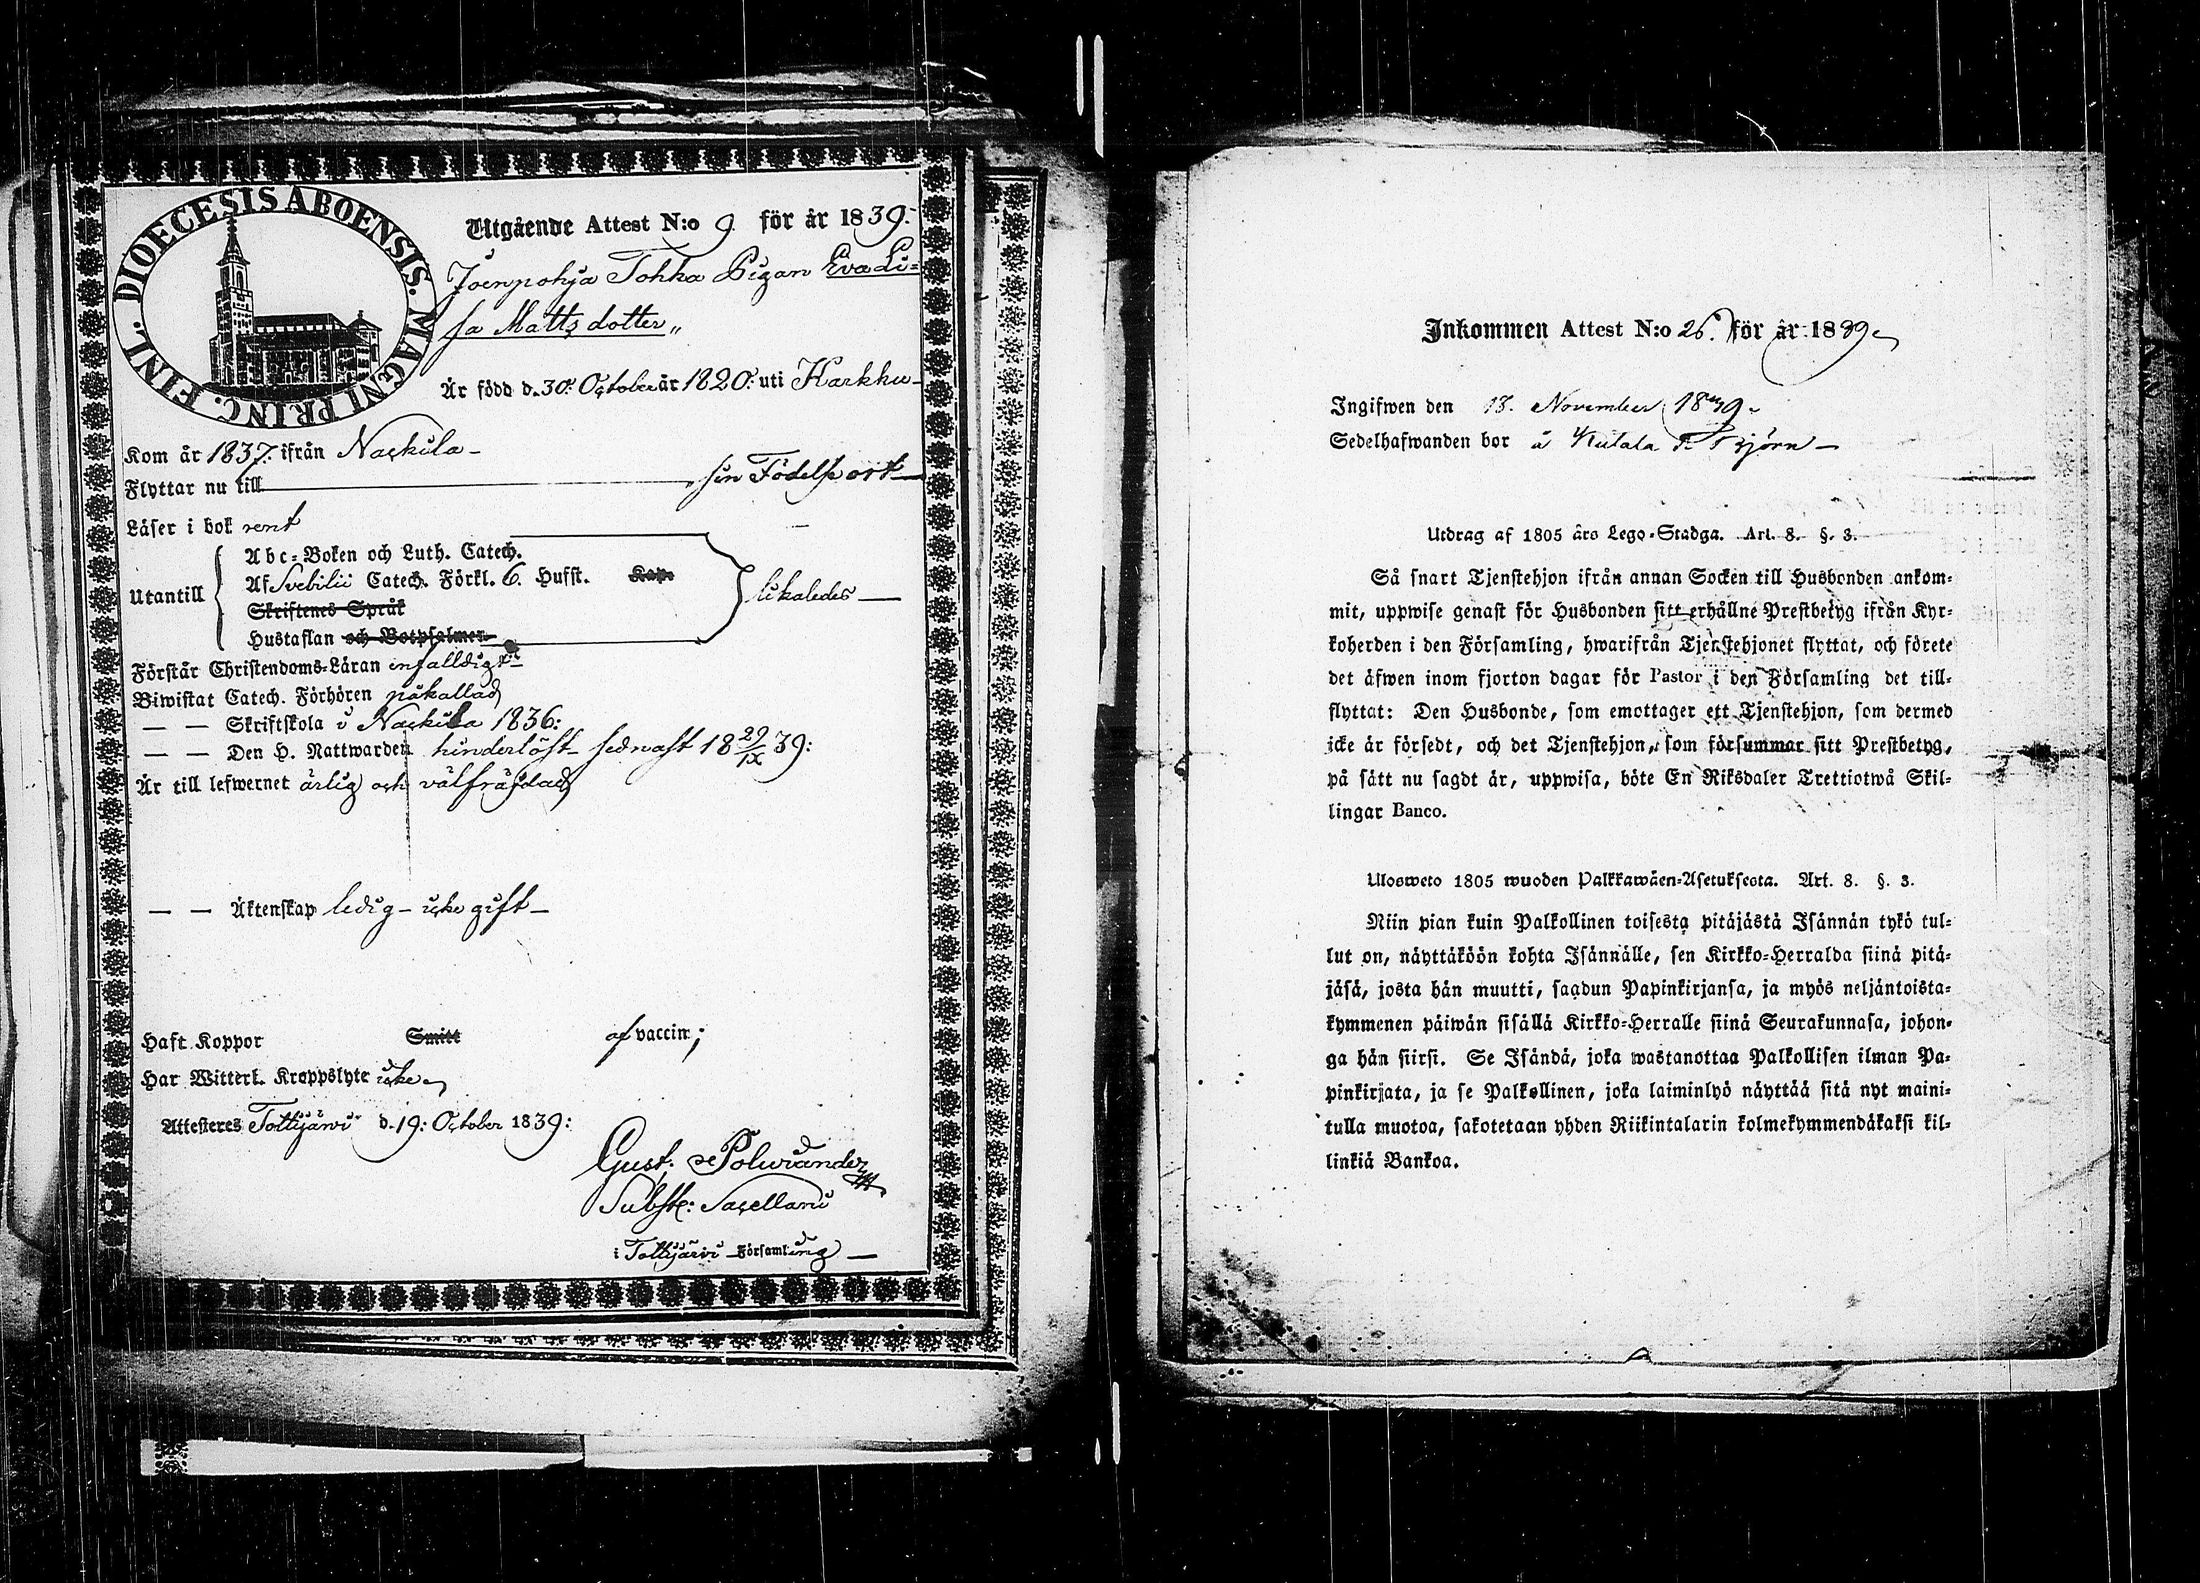 DIOECESIS ABOENSIS. MAGNI PRINC. FINL.
Utgående Attest N:o 9. för år 1839.
Joenpohja Tohka Pigan Eva Li=
sa Matts dotter„
Är född d. 30: October år 1820: uti Karkku –
Kom år 1837. ifrån Nackila –
Flyttar nu till sin Födelse ort –
Läser i bok rent
Utantill
Abc=Boken och Luth. Catech.
Af Svebilii Catech. Förkl. 6. Hufst. Kap.
Skriftenes Språk
Hustaflan och Botpsalmer
likaledes –
Förstår Christendoms=Läran enfalldigt:
Biwistat Catech. Förhören påkallad
— — Skriftskola i Nackila 1836:
— — Den H. Nattwarden hinderlöst sednast 18 29/IX 39:
Är till lefwernet ärlig och välfräjdad
— — Äktenskap ledig – icke gift –
Haft Koppor Smitt af vaccin;
Har Witterl. Kroppslyte icke
Attesteres Tottijärvi d. 19: October 1839:
Gust:
Subst: Sacellan
i Tottijärvi Församling –
Inkommen Attest N:o 26. för år 1839
Ingifwen den 18. November 1839.
Sedelhafwanden bor å Kulala Björn –
Utdrag af 1805 års Lego=Stadga. Art. 8. §. 3.
Så snart Tjenstehjon ifrån annan Socken till Husbonden ankom=
mit, uppwise genast för Husbonden sitt erhållne Prestbetyg ifrån Kyr=
koherden i den Församling, hwarifrån Tjenstehjonet flyttat, och förete
det äfwen inom fjorton dagar för Pastor i den Församling det till=
flyttat: Den Husbonde, som emottager ett Tjenstehjon, som dermed
icke är försedt, och det Tjenstehjon, som försummar sitt Prestbetyg,
på sätt nu sagdt är, uppwisa, böte En Riksdaler Trettiotwå Skil=
lingar Banco.
Ulosweto 1805 wuoden Palkkawäen=Asetuksesta. Art. 8. §. 3.
Niin pian kuin Palkollinen toisesta pitäjästä Isännän tykö tul=
lut on, näyttäköön kohta Isännälle, sen Kirkko=Herralda siinä pitä=
jäsä, josta hän muutti, saadun Papinkirjansa, ja myös neljäntoista=
kymmenen päiwän sisällä Kirkko=Herralle siinä Seurakunnasa, johon=
ga hän siirsi. Se Isändä, joka wastanottaa Palkollisen ilman Pa=
pinkirjata, ja se Palkollinen, joka laiminlyö näyttää sitä nyt maini=
tulla muotoa, sakotetaan yhden Riikintalarin kolmekymmendäkaksi kil=
linkiä Bankoa.